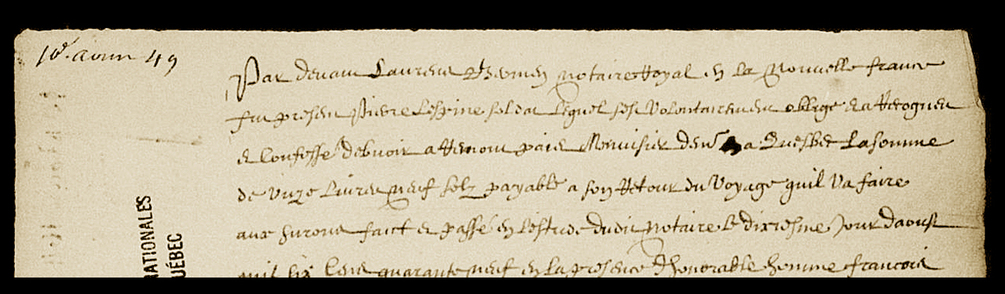 10e aoust 49
Par devant Laurent Bermen notaire Royal en la Nouvelle france
fut present Pierre Lespine soldat lequel sest volontairement oblige et a Recogneu
et Confessé debvoir a paie Menuisier dem a Quesbec La somme
de unze Livres neuf solz payable a son Retour du Voyage quil va faire
aux hurons faict et passé en lestude dudit notaire le dixiesme jour daoust
mil six Cens quarante neuf en la presence dhonorable homme francois
NATIONALES
QUÉBEC